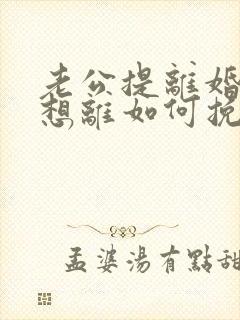 老公提離婚
想離如何挽
孟婆湯有點甜